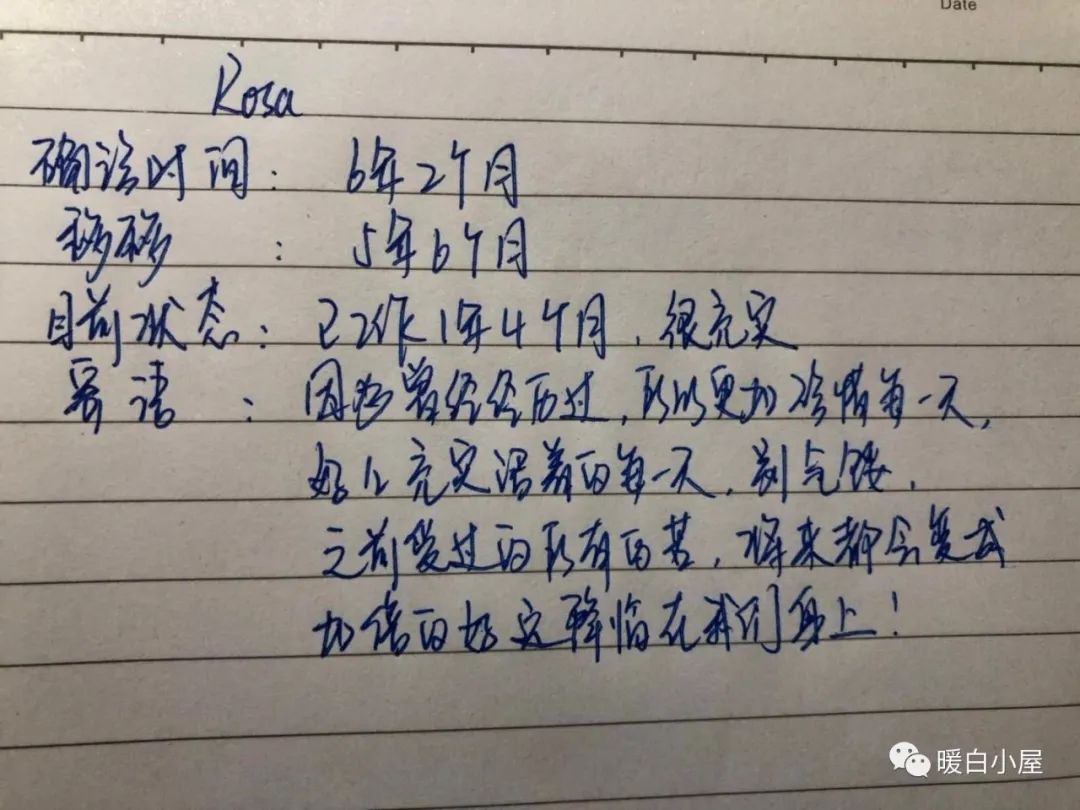 Date
Rosa
确诊时间: 6年2个月
移移 : 5年6个月
目前状态: 已工作1年4个月,很充实
寄语 : 因为曾经经历过,所以更加珍惜每一天,
好好充实滋养的每一天,别气馁,
之前受过的所有的苦,将来都会变成
加倍的好运降临在我们身上!
暖白小屋